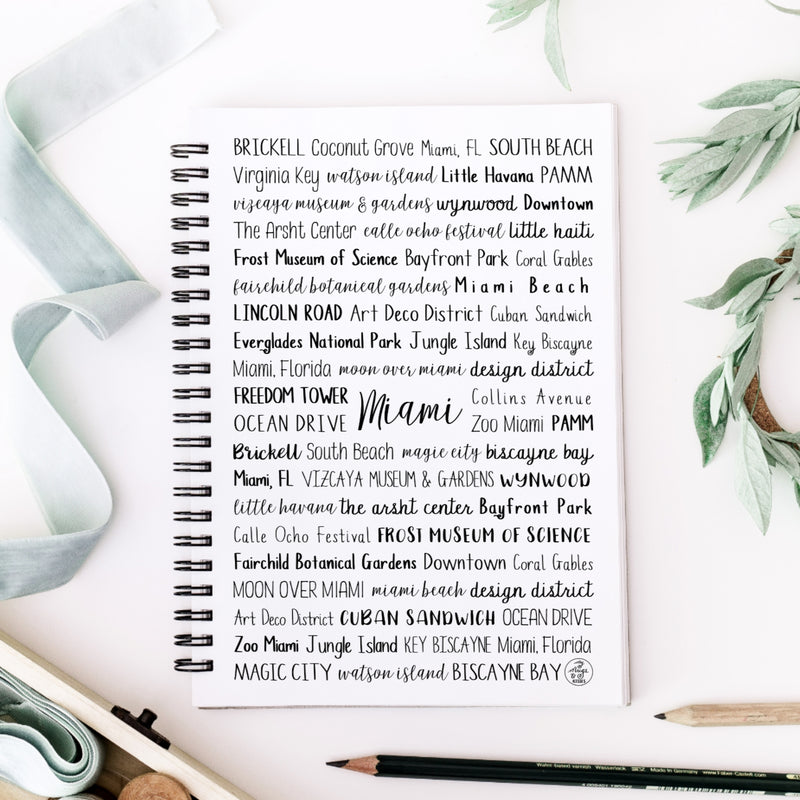 BRICKELL Coconut Grove Miami, FL SOUTH BEACH
Virginia Key watson island Little Havana PAMM
vizcaya museum & gardens wynwood Downtown
The Arsht Center calle ocho festival little haiti
Frost Museum of Science Bayfront Park Coral Gables
fairchild botanical gardens Miami Beach
LINCOLN ROAD Art Deco District Cuban Sandwich
Everglades National Park Jungle Island Key Biscayne
Miami, Florida moon over miami design district
FREEDOM TOWER Collins Avenue
Miami
OCEAN DRIVE Zoo Miami PAMM
Brickell South Beach magic city biscayne bay
Miami, FL VIZCAYA MUSEUM & GARDENS WYNWOOD
little havana the arsht center Bayfront Park
Calle Ocho Festival FROST MUSEUM OF SCIENCE
Fairchild Botanical Gardens Downtown Coral Gables
MOON OVER MIAMI miami beach design district
Art Deco District CUBAN SANDWICH OCEAN DRIVE
Zoo Miami Jungle Island KEY BISCAYNE Miami, Florida
MAGIC CITY watson island BISCAYNE BAY
Made in Germany www.Faber-Castell.com